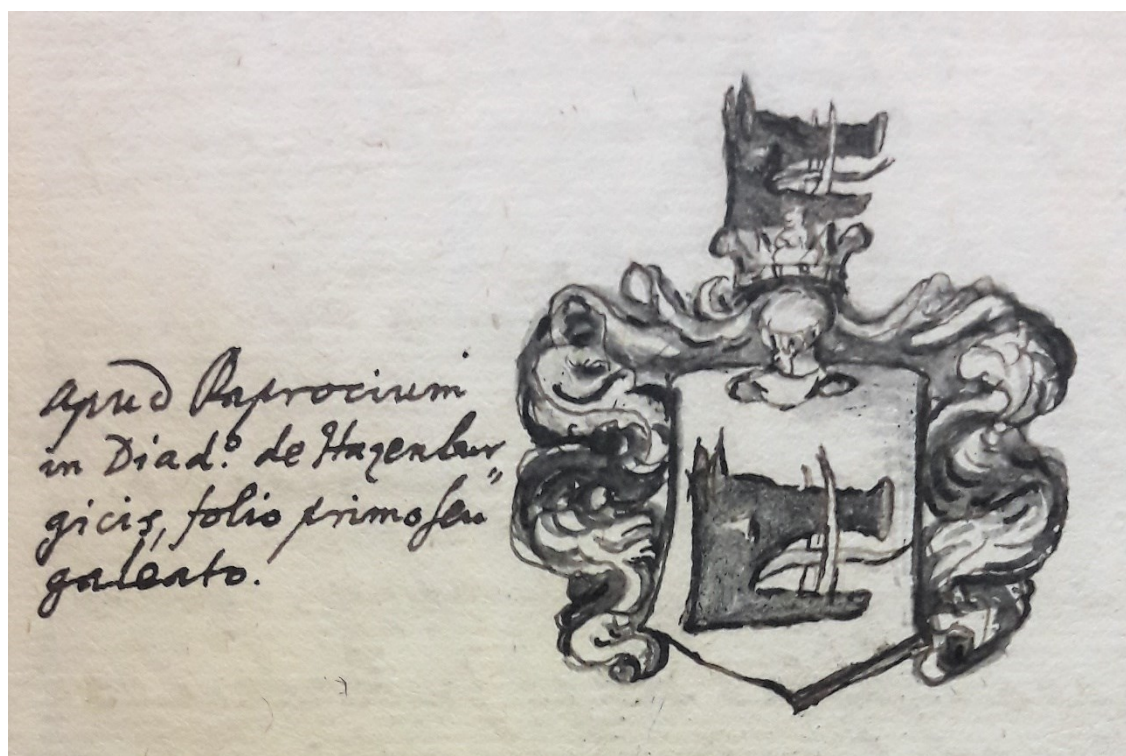 apud Paprocium
in Diad.º de Hagenbur„
gicis, folio primo seu
galeato.